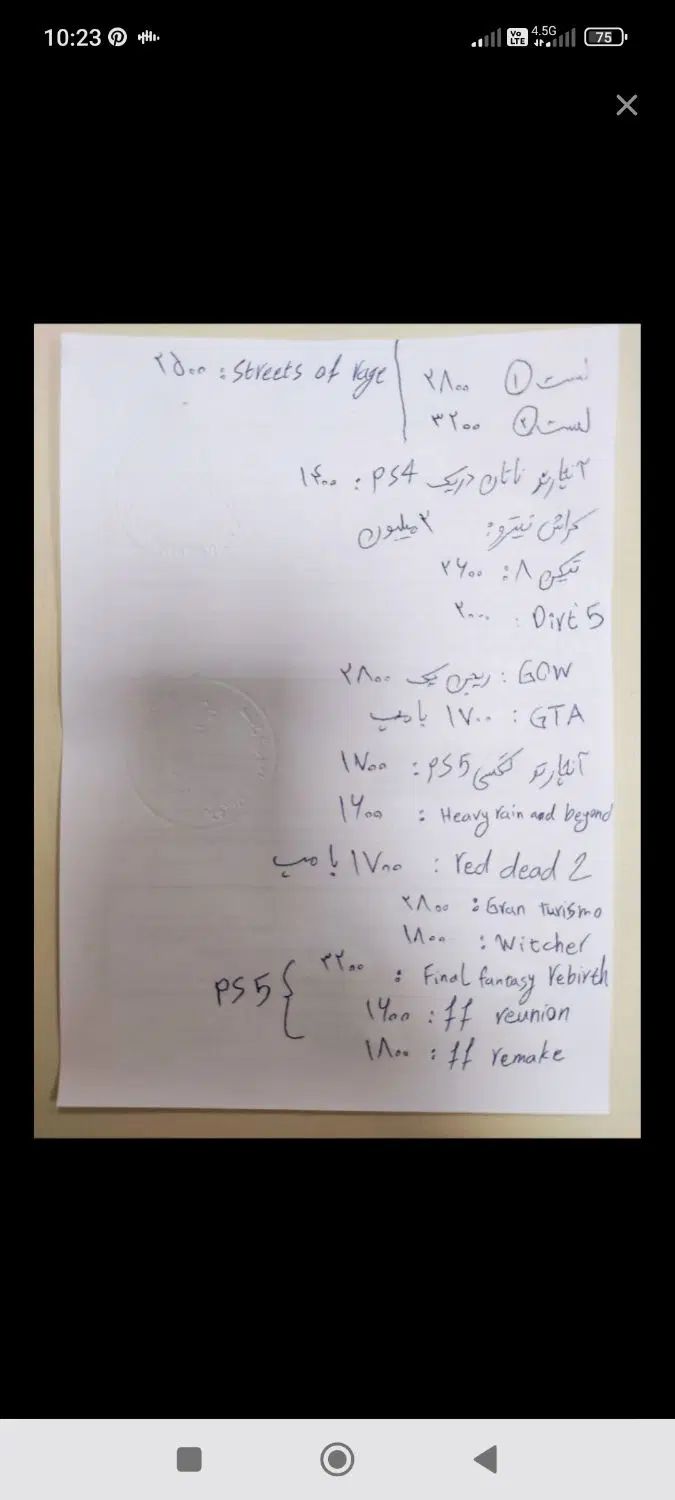 10:23
Vo LTE 4.5G 75
لست ① ۲۸۰۰
لست ② ۳۲۰۰
۲۵۰۰ : Streets of rage
آنچارتد ناتان دریک PS4 : ۱۴۰۰
کراش نیترو: ۲ میلیون
تیکن ۸ : ۲۶۰۰
Dirt 5 : ۲۰۰۰
GOW : ریجن یک ۲۸۰۰
GTA : ۱۷۰۰ با مپ
آنچارتد کالکشن PS5 : ۱۷۰۰
Heavy rain and beyond : ۱۶۰۰
red dead 2 : ۱۷۰۰ با مپ
Gran turismo : ۲۸۰۰
Witcher : ۱۸۰۰
Final fantasy rebirth : ۳۲۰۰
ff reunion : ۱۶۰۰
PS5
ff remake : ۱۸۰۰